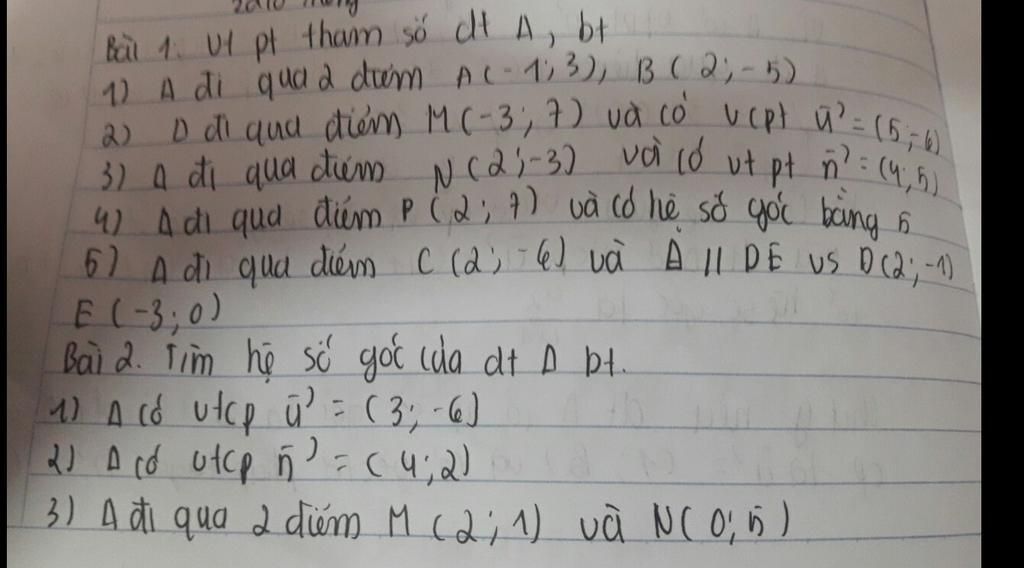 Bài 1. Vt pt tham số dt Δ, bt
1) Δ đi qua 2 điểm A(-1; 3), B(2; -5)
2) Δ đi qua điểm M(-3; 7) và có vtcp u⃗ = (5; -6)
3) Δ đi qua điểm N(2; -3) và có vtpt n⃗ = (4; 5)
4) Δ đi qua điểm P(2; 7) và có hệ số góc bằng 5
5) Δ đi qua điểm C(2; -6) và Δ // DE vs D(2; -1)
E(-3; 0)
Bài 2. Tìm hệ số góc của dt Δ bt.
1) Δ có vtcp u⃗ = (3; -6)
2) Δ có vtcp n⃗ = (4; 2)
3) Δ đi qua 2 điểm M(2; 1) và N(0; 5)